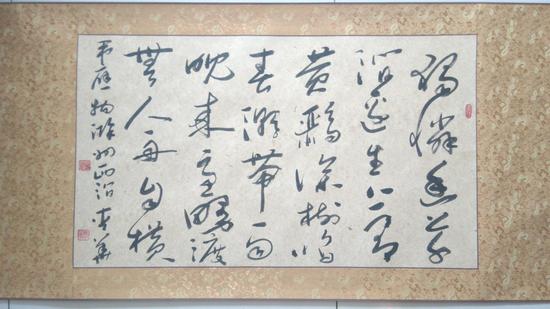 獨憐幽草
澗邊生上有
黃鸝深樹鳴
春潮帶雨
晚來急野渡
無人舟自橫
韋應物滁州西澗 華